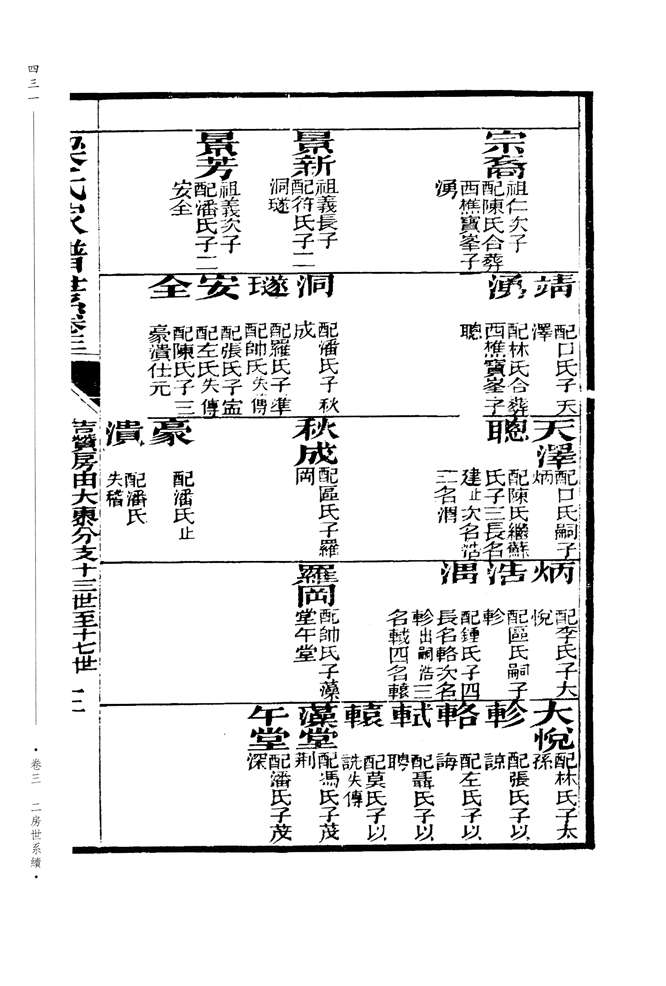 宗裔
祖仁次子
配陳氏合葬
西樵寶峯子
湧
景新
祖義長子
配符氏子二
洞璲
景芳
祖義次子
配潘氏子二
安全
靖
配口氏子天
澤
湧
配林氏合葬
西樵寶峯子
聰
洞
配潘氏子秋
成
璲
配羅氏子準
配帥氏失傳
安
配張氏子寍
配左氏失傳
全
配陳氏子三
豪潰仕元
天澤
配口氏嗣子
炳
聰
配陳氏繼蘇
氏子三長名
建止次名浩
三名濶
秋成
配區氏子羅
岡
豪
配潘氏止
潰
配潘氏
失稽
炳
配李氏子大
悅
浩
配區氏嗣子
軫
配鍾氏子四
長名輅次名
軫出嗣浩三
名軾四名轅
羅岡
配帥氏子藻
堂午堂
大悅
配林氏子太
孫
軫
配張氏子以
諒
輅
配左氏子以
誨
軾
配聶氏子以
聘
轅
配莫氏子以
詵失傳
藻堂
配馮氏子茂
荆
午堂
配潘氏子茂
深
梁氏家譜世系卷三
吉贊房由大東分支十三世至十七世
二
四三一
·卷三 二房世系續·